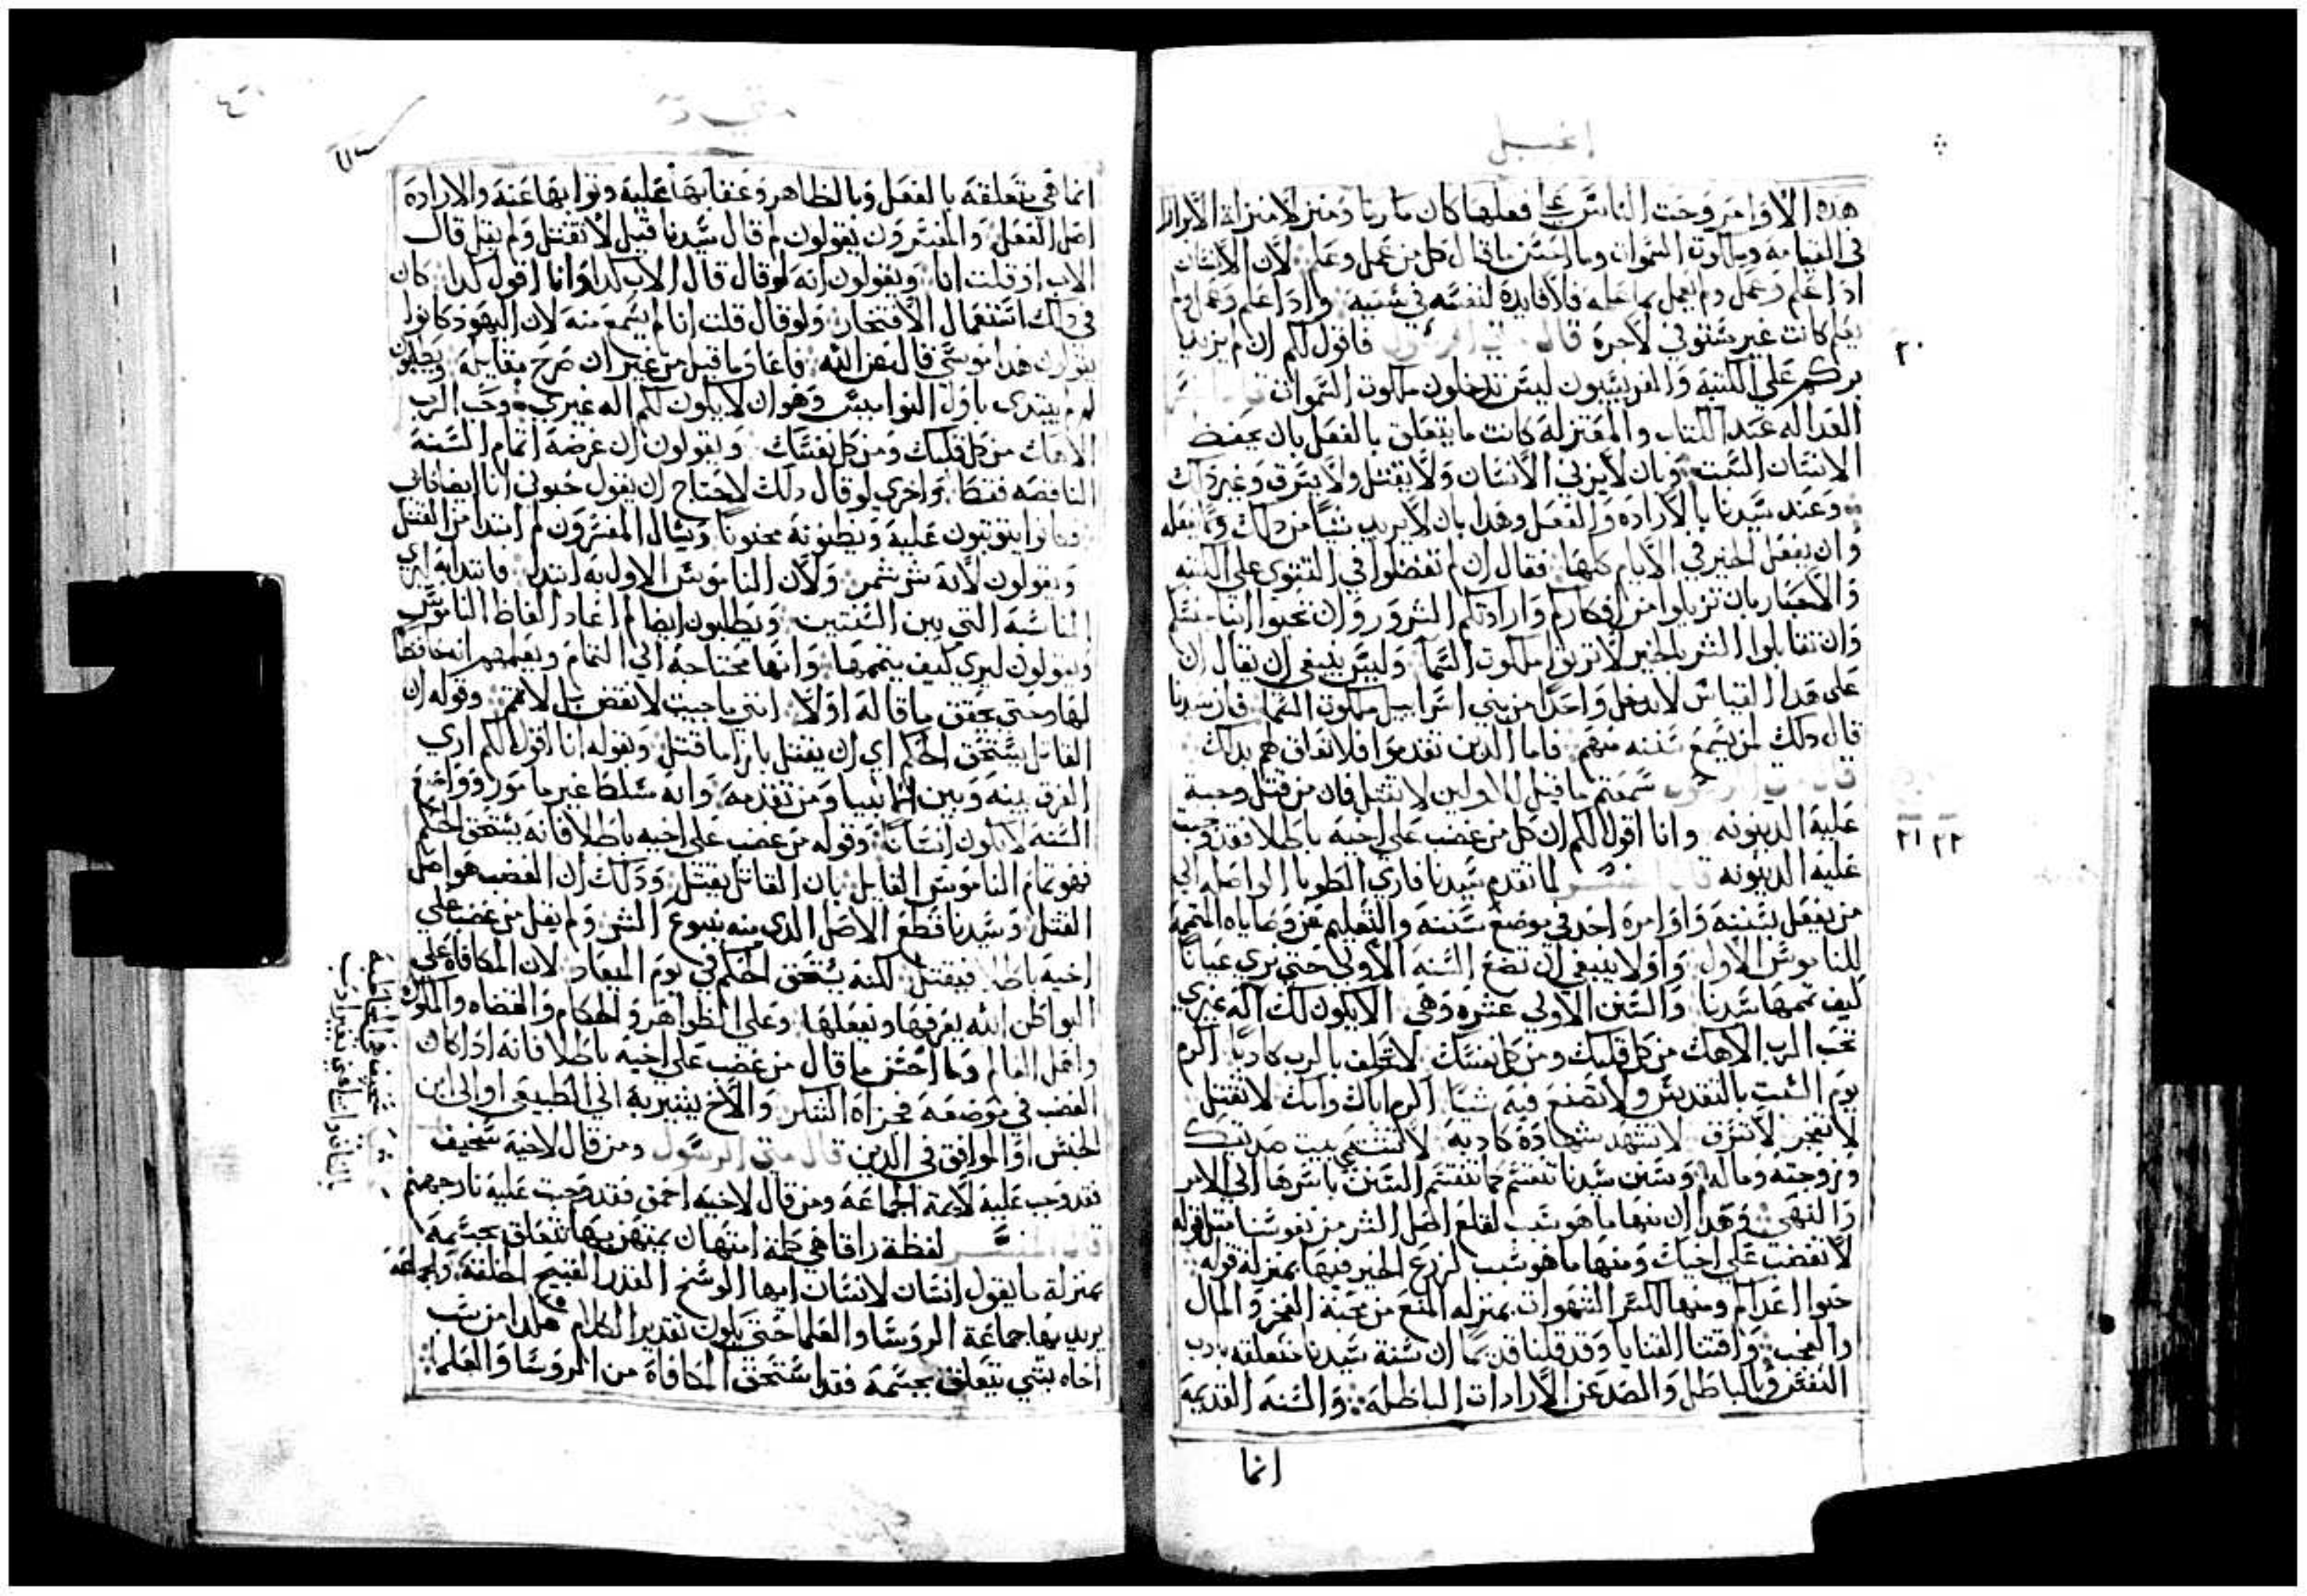 إنجيل
هذه الاوامر وحث الناس على فعلها كان ماريا ومنزلا منزلة الابرار
في القيامه وملكوت السموات وما السنن ماقال كل من عمل وعلم لان الانسان
اذا علم وعمل ولم يعمل بما علمه فلا فايدة لنفسه في شيه واذا علم وعمل ولم
يعلم كانت غير ستوفي لاجرة قال متى الرسول فاقول لكم ان لم يزيد
٢٠
بركم على الكتبه والفريسيون ليس تدخلون ملكوت السموات
العداله عند الكتاب والمعتزلة كانت ما يتعلق بالفعل بان يحفظ
الانسان السبت وبان لا يزني الانسان ولا يقتل ولا يسرق وغير ذلك
وعند سيدنا بالاراده والفعل وهذا بان لا يريد شيا من ذلك ولا يفعله
وان يفعل الخير في الايام كلها فقال ان لم تفضلوا في التقوى على الكتبه
والاحبار بان تزيلوا من افكاركم وارادتكم الشرور وان تحبوا ابنا جنسكم
وان تقابلوا الشر بالخير لا ترثوا ملكوت السما وليس ينبغي ان يقال ان
على هذا القياس لا يدخل واحدا من بني اسراييل ملكوت السما فان سيدنا
قال ذلك لمن يسمع سننه منهم فاما الذين تقدموا فلا تعلق لهم بذلك
قال متى الرسول سمعتم ما قيل للاولين لا تقتل فان من قتل وجبة
٢١ ٢٢
عليه الدينونه وانا اقول لكم ان كل من غضب على اخيه باطلا فقد وجبت
عليه الدينونه قال المفسر لما تقدم سيدنا فاري الطوبا الواصله الى
من يفعل بسننه واوامره اخذ في موضع سننه والتعليم عن وصاياه المتممة
للناموس الاول واولا ينبغي ان تضع السنه الاولى حتى نرى عيانا
كيف تممها سيدنا والسنن الاولى عشره وهي الا يكون لك اله غيري
تحب الرب الاهك من كل قلبك ومن كل نفسك لا تحلف بالرب كاذبا اكرم
يوم السبت بالتقديس ولا تصنع فيه شيا اكرم اباك وامك لا تقتل
لا تفجر لا تسرق لا تشهد شهادة كاذبه لا تشتهي بيت صديقك
وزوجته وماله وسنن سيدنا تنقسم كما تنقسم السنن باسرها الى الامر
والنهي وهذا ان منها ما هو سبب لقلع اصل الشر من نفوسنا مثل قوله
لا تغضب على اخيك ومنها ما هو سبب لزرع الخير فيها بمنزلة قوله
حبوا اعداكم ومنها لكسر الشهوات بمنزله المنع من محبة الفخر والمال
والعجب واقتنا القنايا وقد قلنا قديما ان سنة سيدنا متعلقه بادب
النفس في الباطل والصد عن الارادات الباطله والسنه القديمه
انما
انما هي متعلقة بالفعل وبالظاهر وعقابها عليه وثوابها عنه والاراده
اصل الفعل والمفسرون يقولون لم قال سيدنا قيل لا تقتل ولم يقل قال
الاب او قلت انا ويقولون انه لو قال قال الاب كذا وانا اقول كذا كان
في ذلك استعمال الافتخار ولو قال قلت انا لم يسمع منه لان اليهود كانوا
يقولون هذا موسى قاله عن الله فاعاد ما قيل من غير ان صرح بقايله ويطلبون
لم لم يبتدى باول النواميس وهو ان لا يكون لكم اله غيري وحب الرب
الاهك من كل قلبك ومن كل نفسك ويقولون ان غرضه اتمام السنة
الناقصه فقط واخرى لو قال ذلك لاحتاج ان يقول حبوني انا ايضا
فكانوا يثوبون عليه ويظنونه مجنونا ويسال المفسرون لم ابتدا من القتل
ويقولون لانه شر شمر ولان الناموس الاول به ابتدا فابتدا به ليري
المناسبه التي بين السنتين ويطلبون ايضا لم اعاد الفاظ الناموس
ويقولون ليرى كيف يتممها وانها محتاجة الى التمام ويعلمهم انه حافظا
لها وحتى يحقق ما قاله اولا انني ما جيت لانقض بل لاتمم وقوله ان
القاتل يستحق الحكم اي ان يقتل بازا ما قتل وبقوله انا اقول لكم اري
الفرق بينه وبين الانبيا ومن تقدمه وانه سلطا غير مامور وواضع
السنه لا يكون انسانا وقوله من غضب على اخيه باطلا فانه يستحق الحكم
فهو تمام الناموس القايل بان القاتل يقتل وذلك ان الغضب هو اصل
القتل وسيدنا قطع الاصل الذي منه ينبوع الشر ولم يقل من غضب على
اخيه باطلا فيقتل لكنه يستحق الحكم في يوم الميعاد لان المكافاة على
البواطن الله يعرفها ويفعلها وعلى الظواهر والحكام والقضاه والملوك
واهل العالم وما احسن ما قال من غضب على اخيه باطلا فانه اذا كان
الغضب في موضعه فجزاه الشكر والاخ يشير به الى الطبيعي او الى ابن
الجنس او الموافق في الدين قال متى الرسول ومن قال لاخيه سخيف
فقد وجب عليه لايمة الجماعة ومن قال لاخيه احمق فقد وجبت عليه نار جهنم
قال المفسر لفظة راقا هي كلمة امتهان يمتهن بها تتعلق بجسمه
بمنزلة ما يقول انسان لانسان ايها الوسخ القذر القبيح الخلقه والجماعة
يريد بها جماعة الروسا والعلما حتى يكون تقدير الكلام هكذا من سب
اخاه بشي يتعلق بجسمه فقد استحق المكافاة من الروسا والعلما